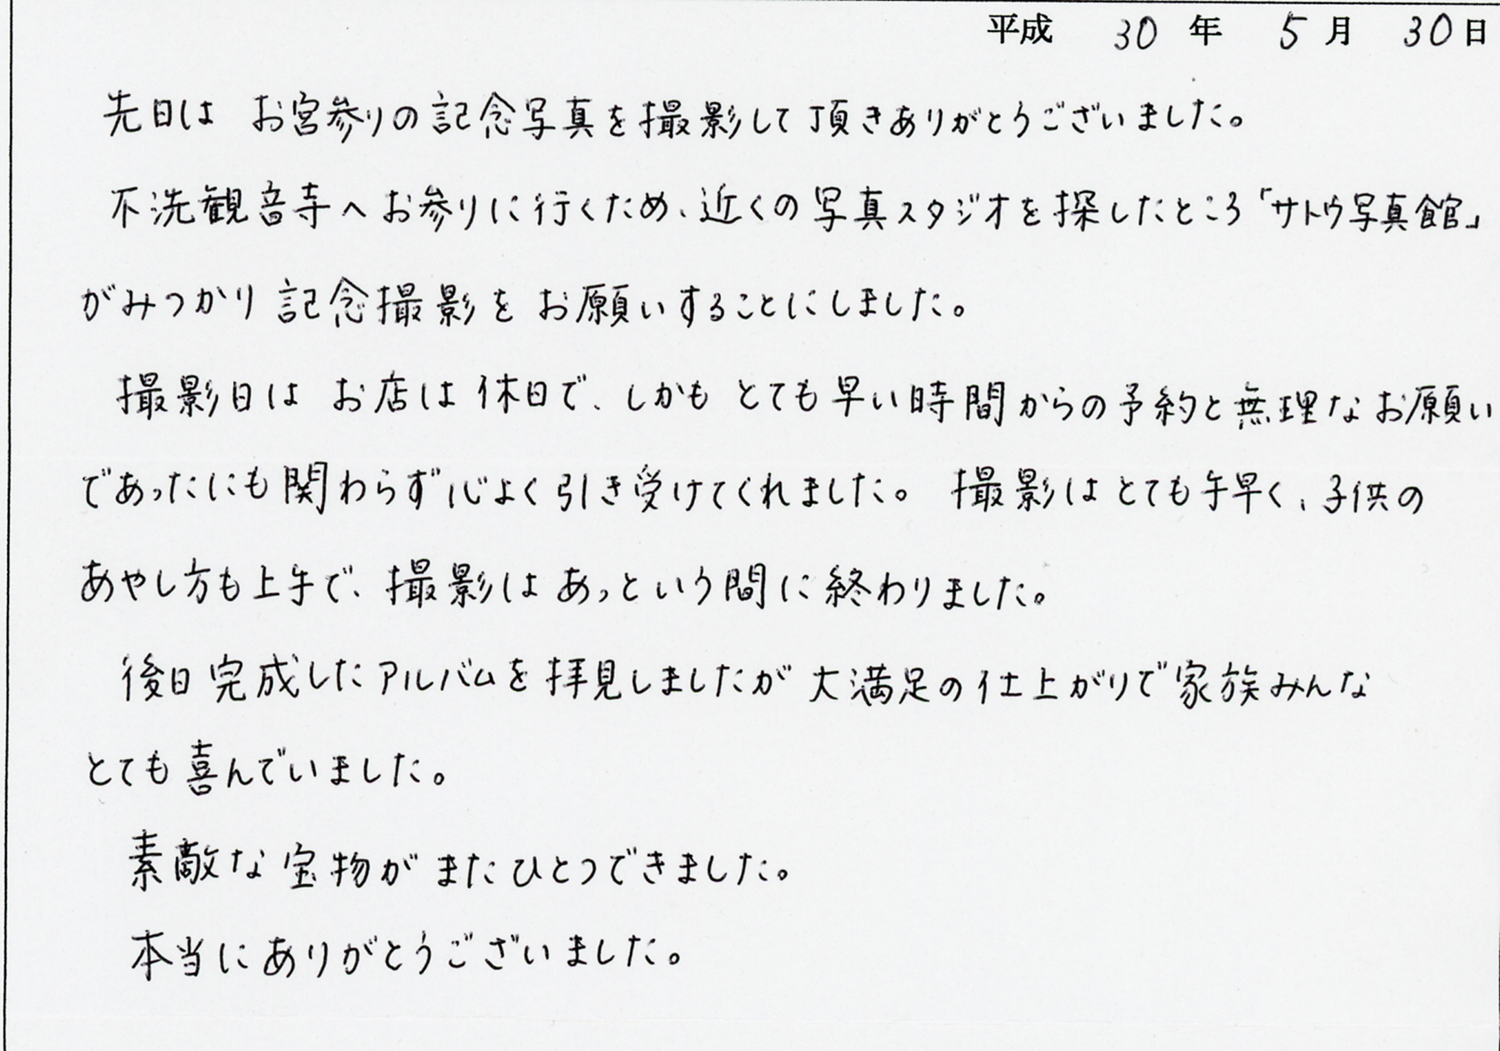 平成 30 年 5 月 30 日
先日は お宮参りの記念写真を撮影して頂きありがとうございました。
不洗観音寺へお参りに行くため、近くの写真スタジオを探したところ「サトウ写真館」
がみつかり記念撮影をお願いすることにしました。
撮影日は お店は休日で、しかも とても早い時間からの予約と無理なお願い
であったにも関わらず心よく引き受けてくれました。 撮影はとても手早く、子供の
あやし方も上手で、撮影はあっという間に終わりました。
後日完成したアルバムを拝見しましたが大満足の仕上がりで家族みんな
とても喜んでいました。
素敵な宝物がまたひとつできました。
本当にありがとうございました。